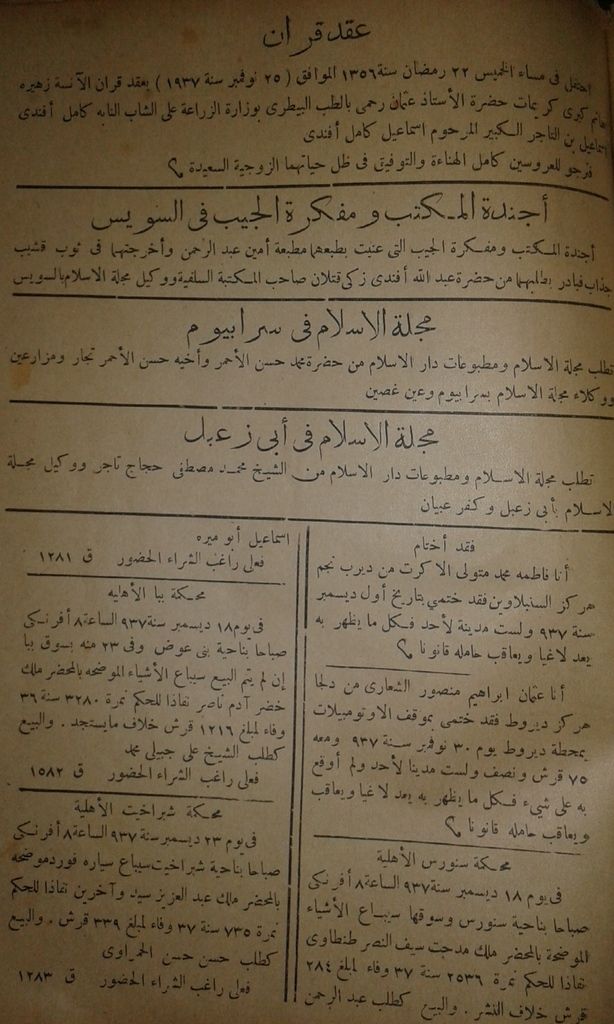 عقد قران
احتفل فى مساء الخميس ٢٢ رمضان سنة ١٣٥٦ الموافق ( ٢٥ نوفمبر سنة ١٩٣٧ ) بعقد قران الآنسة زهيره
هانم كبرى كريمات حضرة الأستاذ عثمان رحمى بالطب البيطرى بوزارة الزراعة على الشاب النابه كامل أفندى
اسماعيل بن التاجر الكبير المرحوم اسماعيل كامل أفندى
فنرجو للعروسين كامل الهناءة والتوفيق فى ظل حياتهما الزوجية السعيدة
أجندة المكتب ومفكرة الجيب فى السويس
أجندة المكتب ومفكرة الجيب التى عنيت بطبعهما مطبعة أمين عبد الرحمن وأخرجتهما فى ثوب قشيب
جذاب فبادر بطلبهما من حضرة عبد الله أفندى زكى قتلان صاحب المكتبة السلفية ووكيل مجلة الاسلام بالسويس
مجلة الاسلام فى سرابيوم
تطلب مجلة الاسلام ومطبوعات دار الاسلام من حضرة محمد حسن الأحمر وأخيه حسن الأحمر تجار ومزارعين
ووكلاء مجلة الاسلام بسرابيوم وعين غصين
مجلة الاسلام فى أبى زعبل
تطلب مجلة الاسلام ومطبوعات دار الاسلام من الشيخ محمد مصطفى حجاج تاجر ووكيل مجلة
الاسلام بأبى زعبل وكفر عبيان
فقد أختام
أنا فاطمه محمد متولى الاكرت من ديرب نجم
مركز السنبلاوين فقد ختمي بتاريخ أول ديسمبر
سنة ٩٣٧ ولست مدينة لأحد فكل ما يظهر به
يعد لاغيا ويعاقب حامله قانونا
أنا عثمان ابراهيم منصور الشعارى من دلجا
مركز ديروط فقد ختمى بموقف الاوتومبيلات
بمحطة ديروط يوم ٣٠ نوفمبر سنة ٩٣٧ ومعه
٧٥ قرش ونصف ولست مدينا لأحد ولم أوقع
به على شيء فكل ما يظهر به يعد لاغيا ويعاقب
ويعاقب حامله قانونا
محكمة سنورس الأهلية
فى يوم ١٨ ديسمبر سنة ٩٣٧ الساعة ٨ أفرنكى
صباحا بناحية سنورس وسوقها سيباع الأشياء
الموضحة بالمحضر ملك مدحت سيف النصر طنطاوى
نفاذا للحكم نمرة ٢٥٣٦ سنة ٣٧ وفاء لمبلغ ٢٨٤
قرش خلاف النشر . والبيع كطلب عبد الرحمن
اسماعيل أبو ميره
فعلى راغب الشراء الحضور ق ١٢٨١
محكمة ببا الأهليه
فى يوم ١٨ ديسمبر سنة ٩٣٧ الساعة ٨ أفرنكى
صباحا بناحية بنى عوض وفى ٢٣ منه بسوق ببا
إن لم يتم البيع سيباع الأشياء الموضحه بالمحضر ملك
خضر آدم ناصر نفاذا للحكم نمرة ٣٢٨٠ سنة ٣٦
وفاء لمبلغ ١٢١٦ قرش خلاف ما يستجد . والبيع
كطلب الشيخ على جبيلى محمد
فعلى راغب الشراء الحضور ق ١٥٨٢
محكمة شبراخيت الأهلية
فى يوم ٢٣ ديسمبر سنة ٩٣٧ الساعة ٨ أفرنكى
صباحا بناحية شبراخيت سيباع سياره فورد موضحه
بالمحضر ملك عبد العزيز سيد وآخرين نفاذا للحكم
نمرة ٧٣٥ سنة ٣٧ وفاء لمبلغ ٣٣٩ قرش . والبيع
كطلب حسن حسن الحمراوى
فعلى راغب الشراء الحضور ق ١٢٨٣